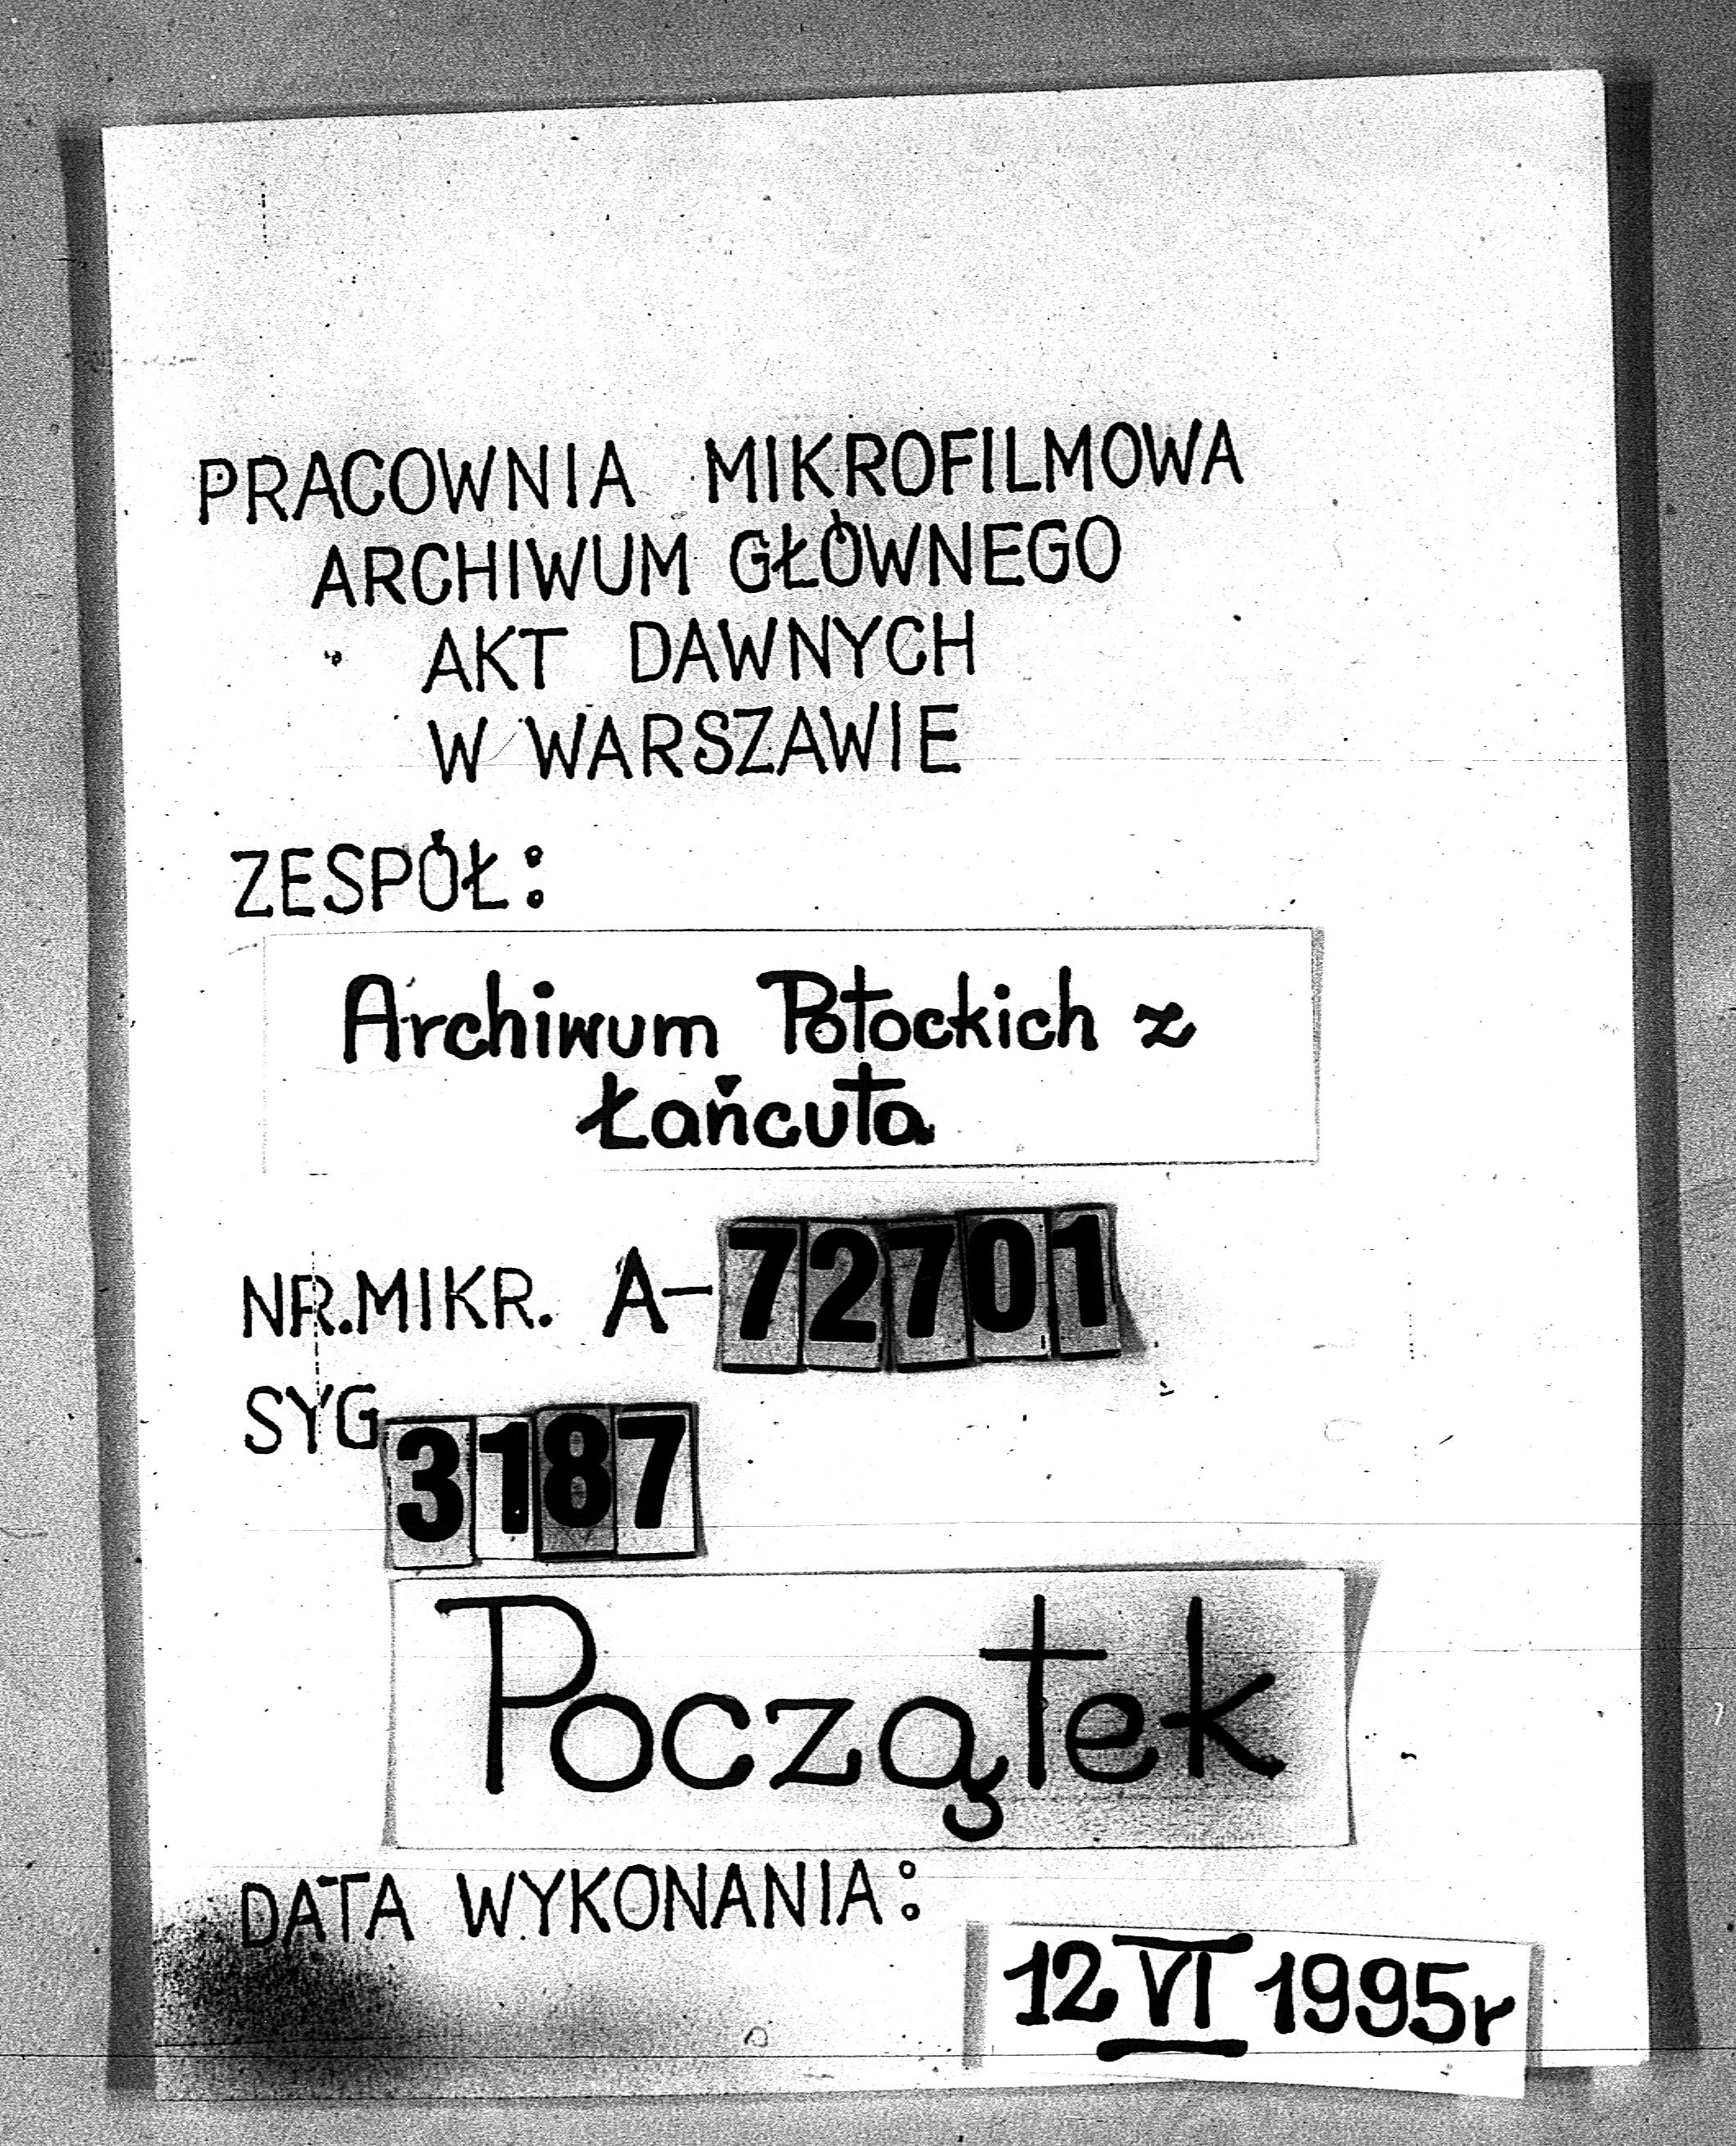 PRACOWNIA MIKROFILMOWA
ARCHIWUM GŁÓWNEGO
AKT DAWNYCH
W WARSZAWIE
ZESPÓŁ:
Archiwum Potockich z
Łańcuta
NR.MIKR. A-72701
SYG 3187
Początek
DATA WYKONANIA:
12 VI 1995r